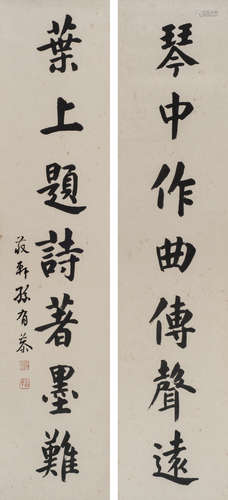 琴中作曲傳聲遠
葉上題詩著墨難
孫有恭